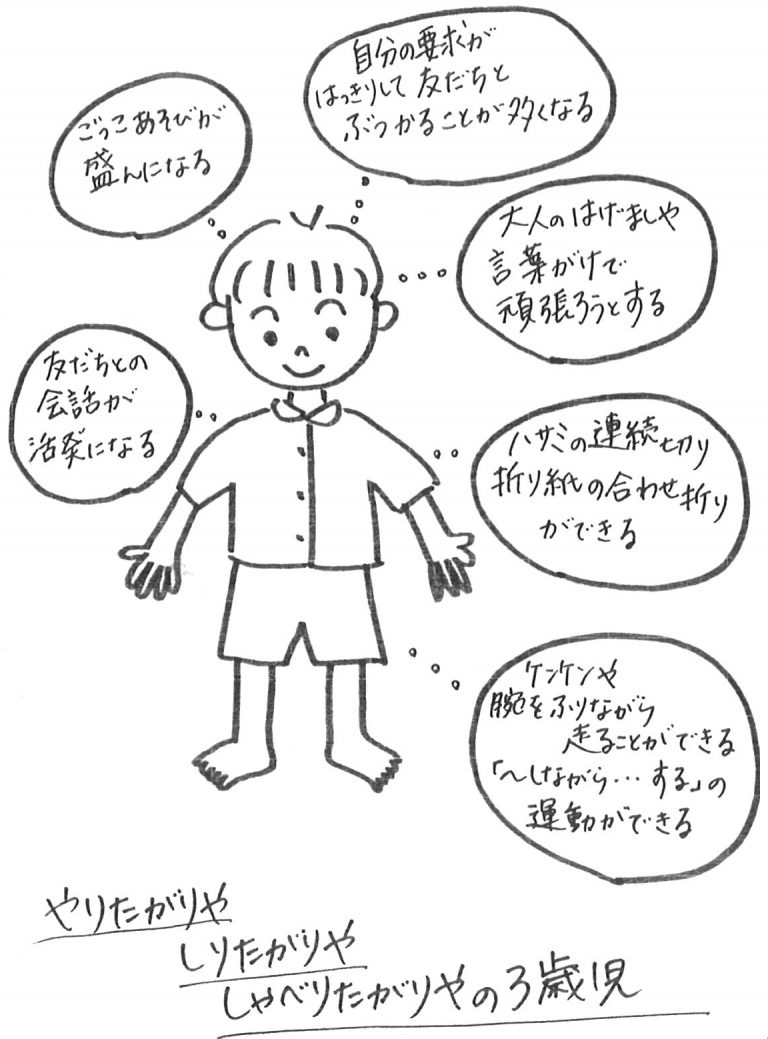 自分の要求が
はっきりして友だちと
ぶつかることが多くなる
ごっこあそびが
盛んになる
大人のはげましや
言葉がけで
頑張ろうとする
友だちとの
会話が
活発になる
ハサミの連続切り
折り紙の合わせ折り
ができる
ケンケンや
腕をふりながら
走ることができる
「～しながら…する」の
運動ができる
やりたがりや
しりたがりや
しゃべりたがりやの3歳児